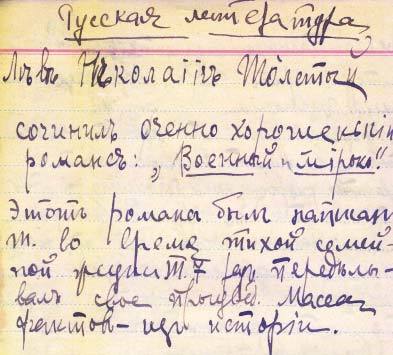 Русская литература
Левъ Николаiичъ Толстый
сочинилъ оченно хорошенькiй
романсъ: „Военный и мiрно!"
Этотъ романъ былъ написан
Т. во время тихой семей-
ной жизни Т. 7 раз передѣлы-
валъ свое произвед. Масса
фактовъ - изъ исторiи.